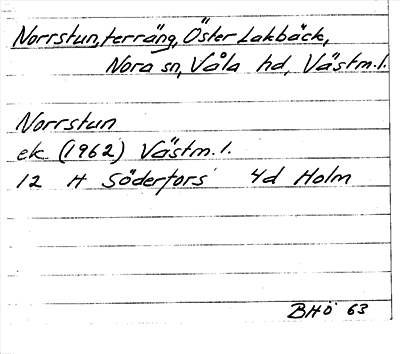 Norrstun, terräng, Öster Lakbäck,
Nora sn, Våla hd, Västm. l.
Norrstun
ek. (1962) Västm. l.
12 H Söderfors 4d Holm
BHÖ 63